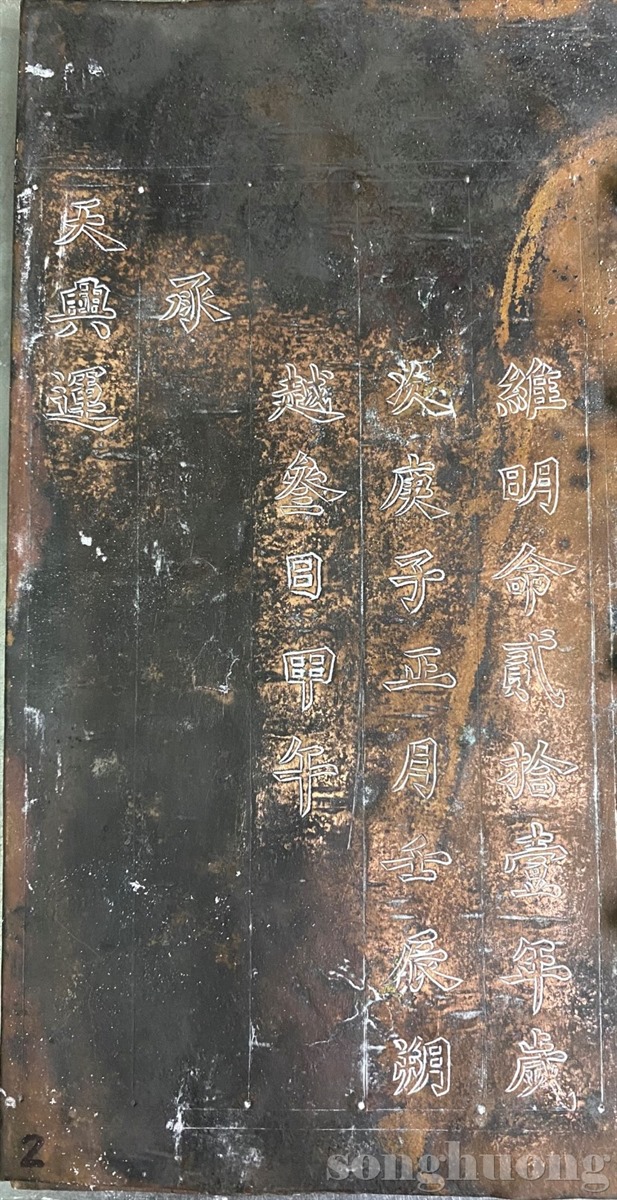 維明命貳拾壹年歲
次庚子正月壬辰朔
越叄日甲午
承
天興運
2
songhuong